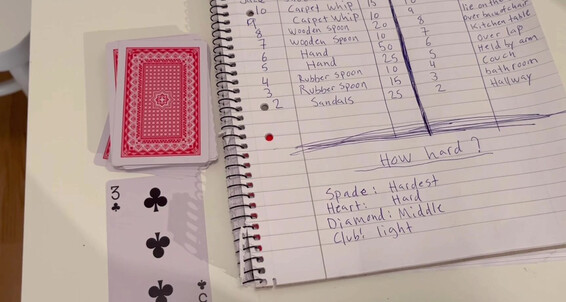 10 Carpet Whip 15 10
9 Carpet Whip 10 9 over of chair
8 Wooden Spoon 20 8 Kitchen table
7 Wooden Spoon 10 7 Over lap
6 Hand 50 6 Held by arm
5 Hand 25 5 Couch
4 Rubber Spoon 10 4 bathroom
3 Rubber Spoon 15 3 Hallway
2 Sandals 25 2
How hard?
Spade: Hardest
Heart: Hard
Diamond: Middle
Club: light
3